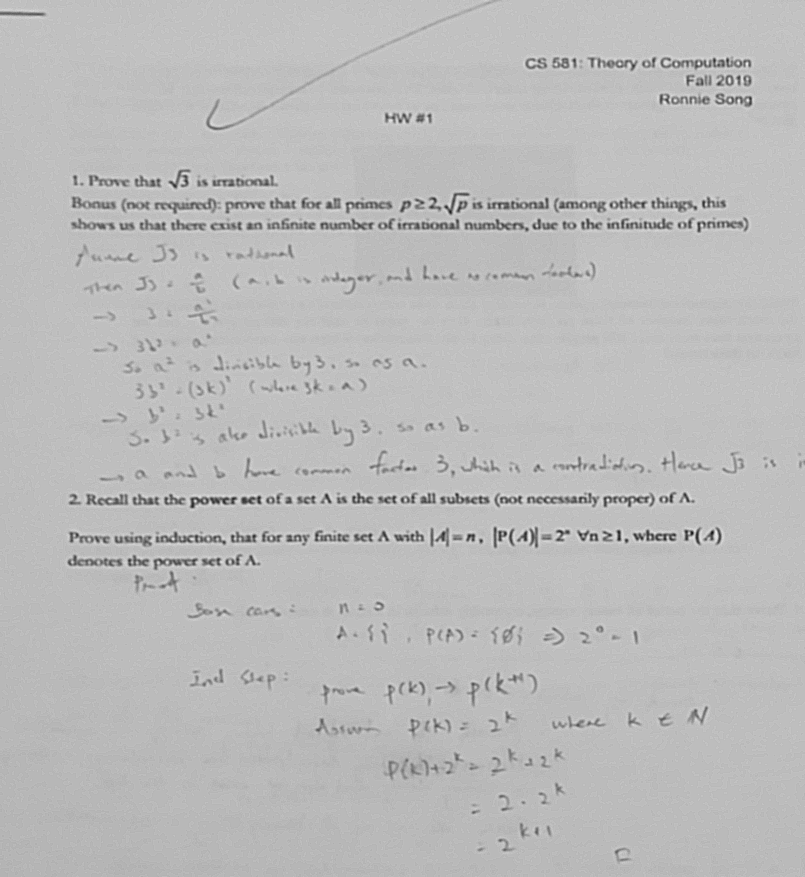 CS 581: Theory of Computation
Fall 2019
Ronnie Song
HW #1
1. Prove that √3 is irrational.
Bonus (not required): prove that for all primes p ≥ 2, √p is irrational (among other things, this
shows us that there exist an infinite number of irrational numbers, due to the infinitude of primes)
Assume √3 is rational
Then √3 = a/b (a, b is integer, and have no common factors)
→ 3 = a²/b²
→ 3b² = a²
So a² is divisible by 3, so as a.
3b² = (3k)² (where 3k = a)
→ b² = 3k²
So b² is also divisible by 3, so as b.
→ a and b have common factor 3, which is a contradiction. Hence √3 is i
2. Recall that the power set of a set A is the set of all subsets (not necessarily proper) of A.
Prove using induction, that for any finite set A with |A| = n, |P(A)| = 2ⁿ ∀n ≥ 1, where P(A)
denotes the power set of A.
Proof:
Base case: n = 0
A = { }, P(A) = {∅} ⇒ 2⁰ = 1
Ind Step: prove p(k) → p(k+1)
Assume P(k) = 2ᵏ where k ∈ N
P(k) + 2ᵏ = 2ᵏ + 2ᵏ
= 2 · 2ᵏ
= 2ᵏ⁺¹